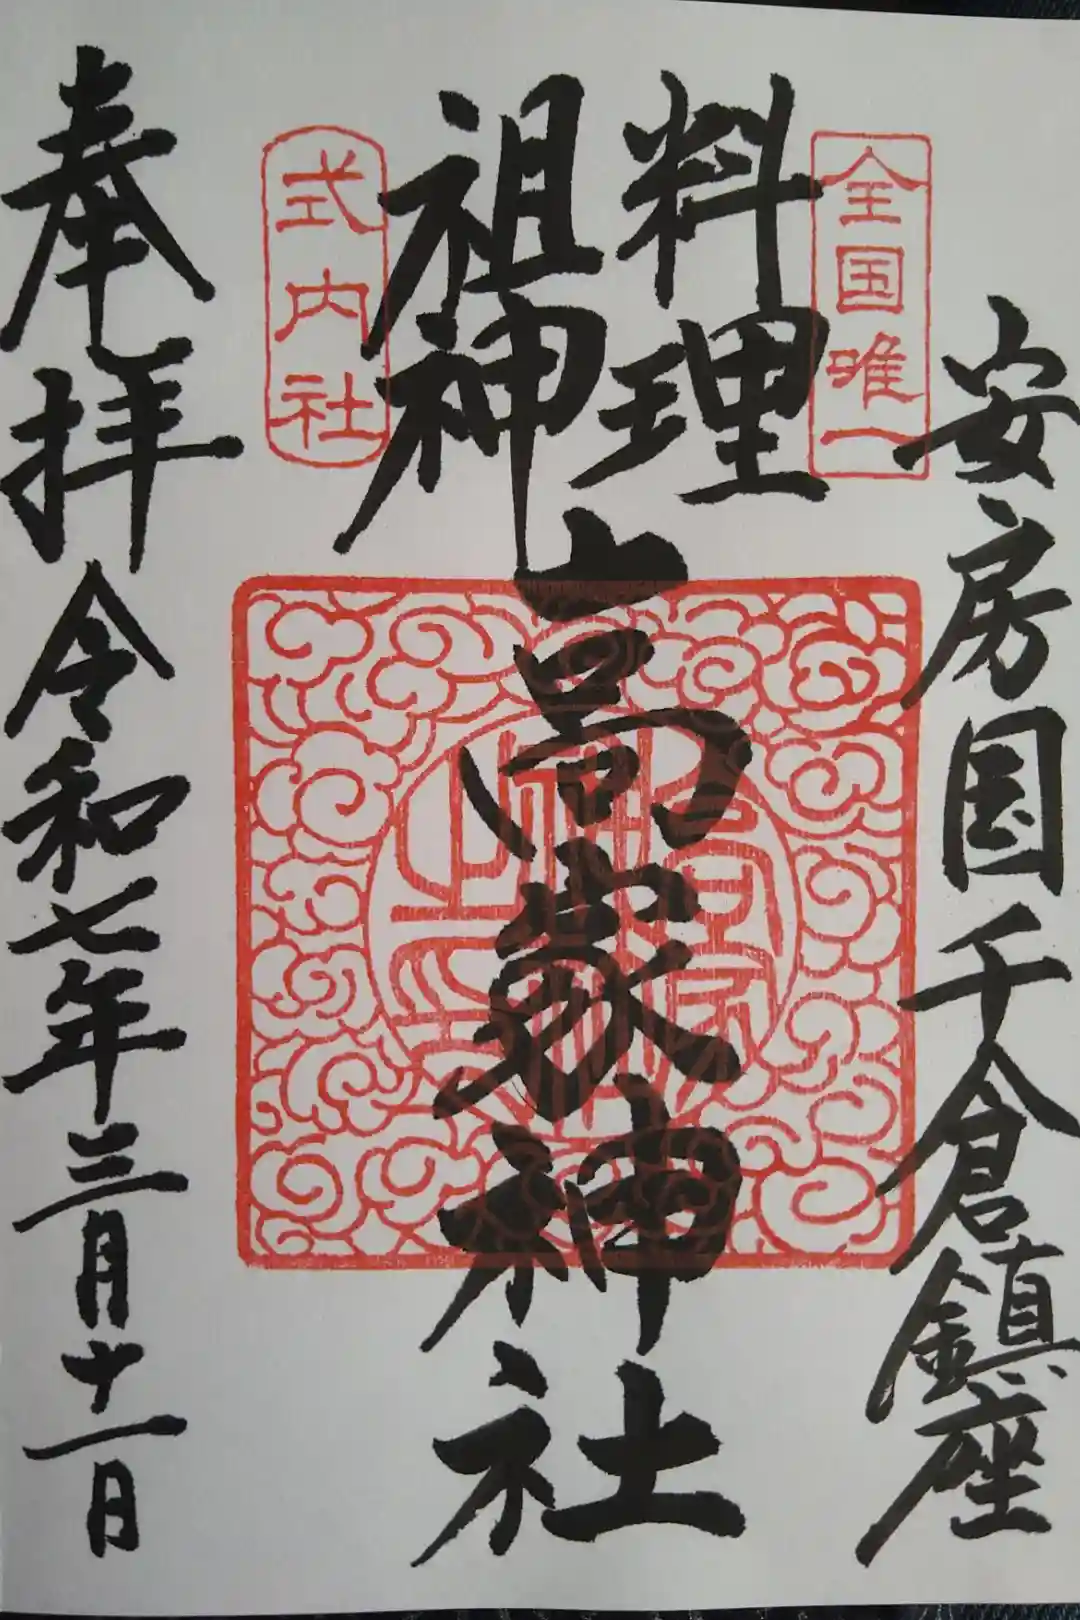 安房国千倉鎮座
全国唯一
料理
祖神
高家神社
式内社
奉拝
令和七年三月十一日